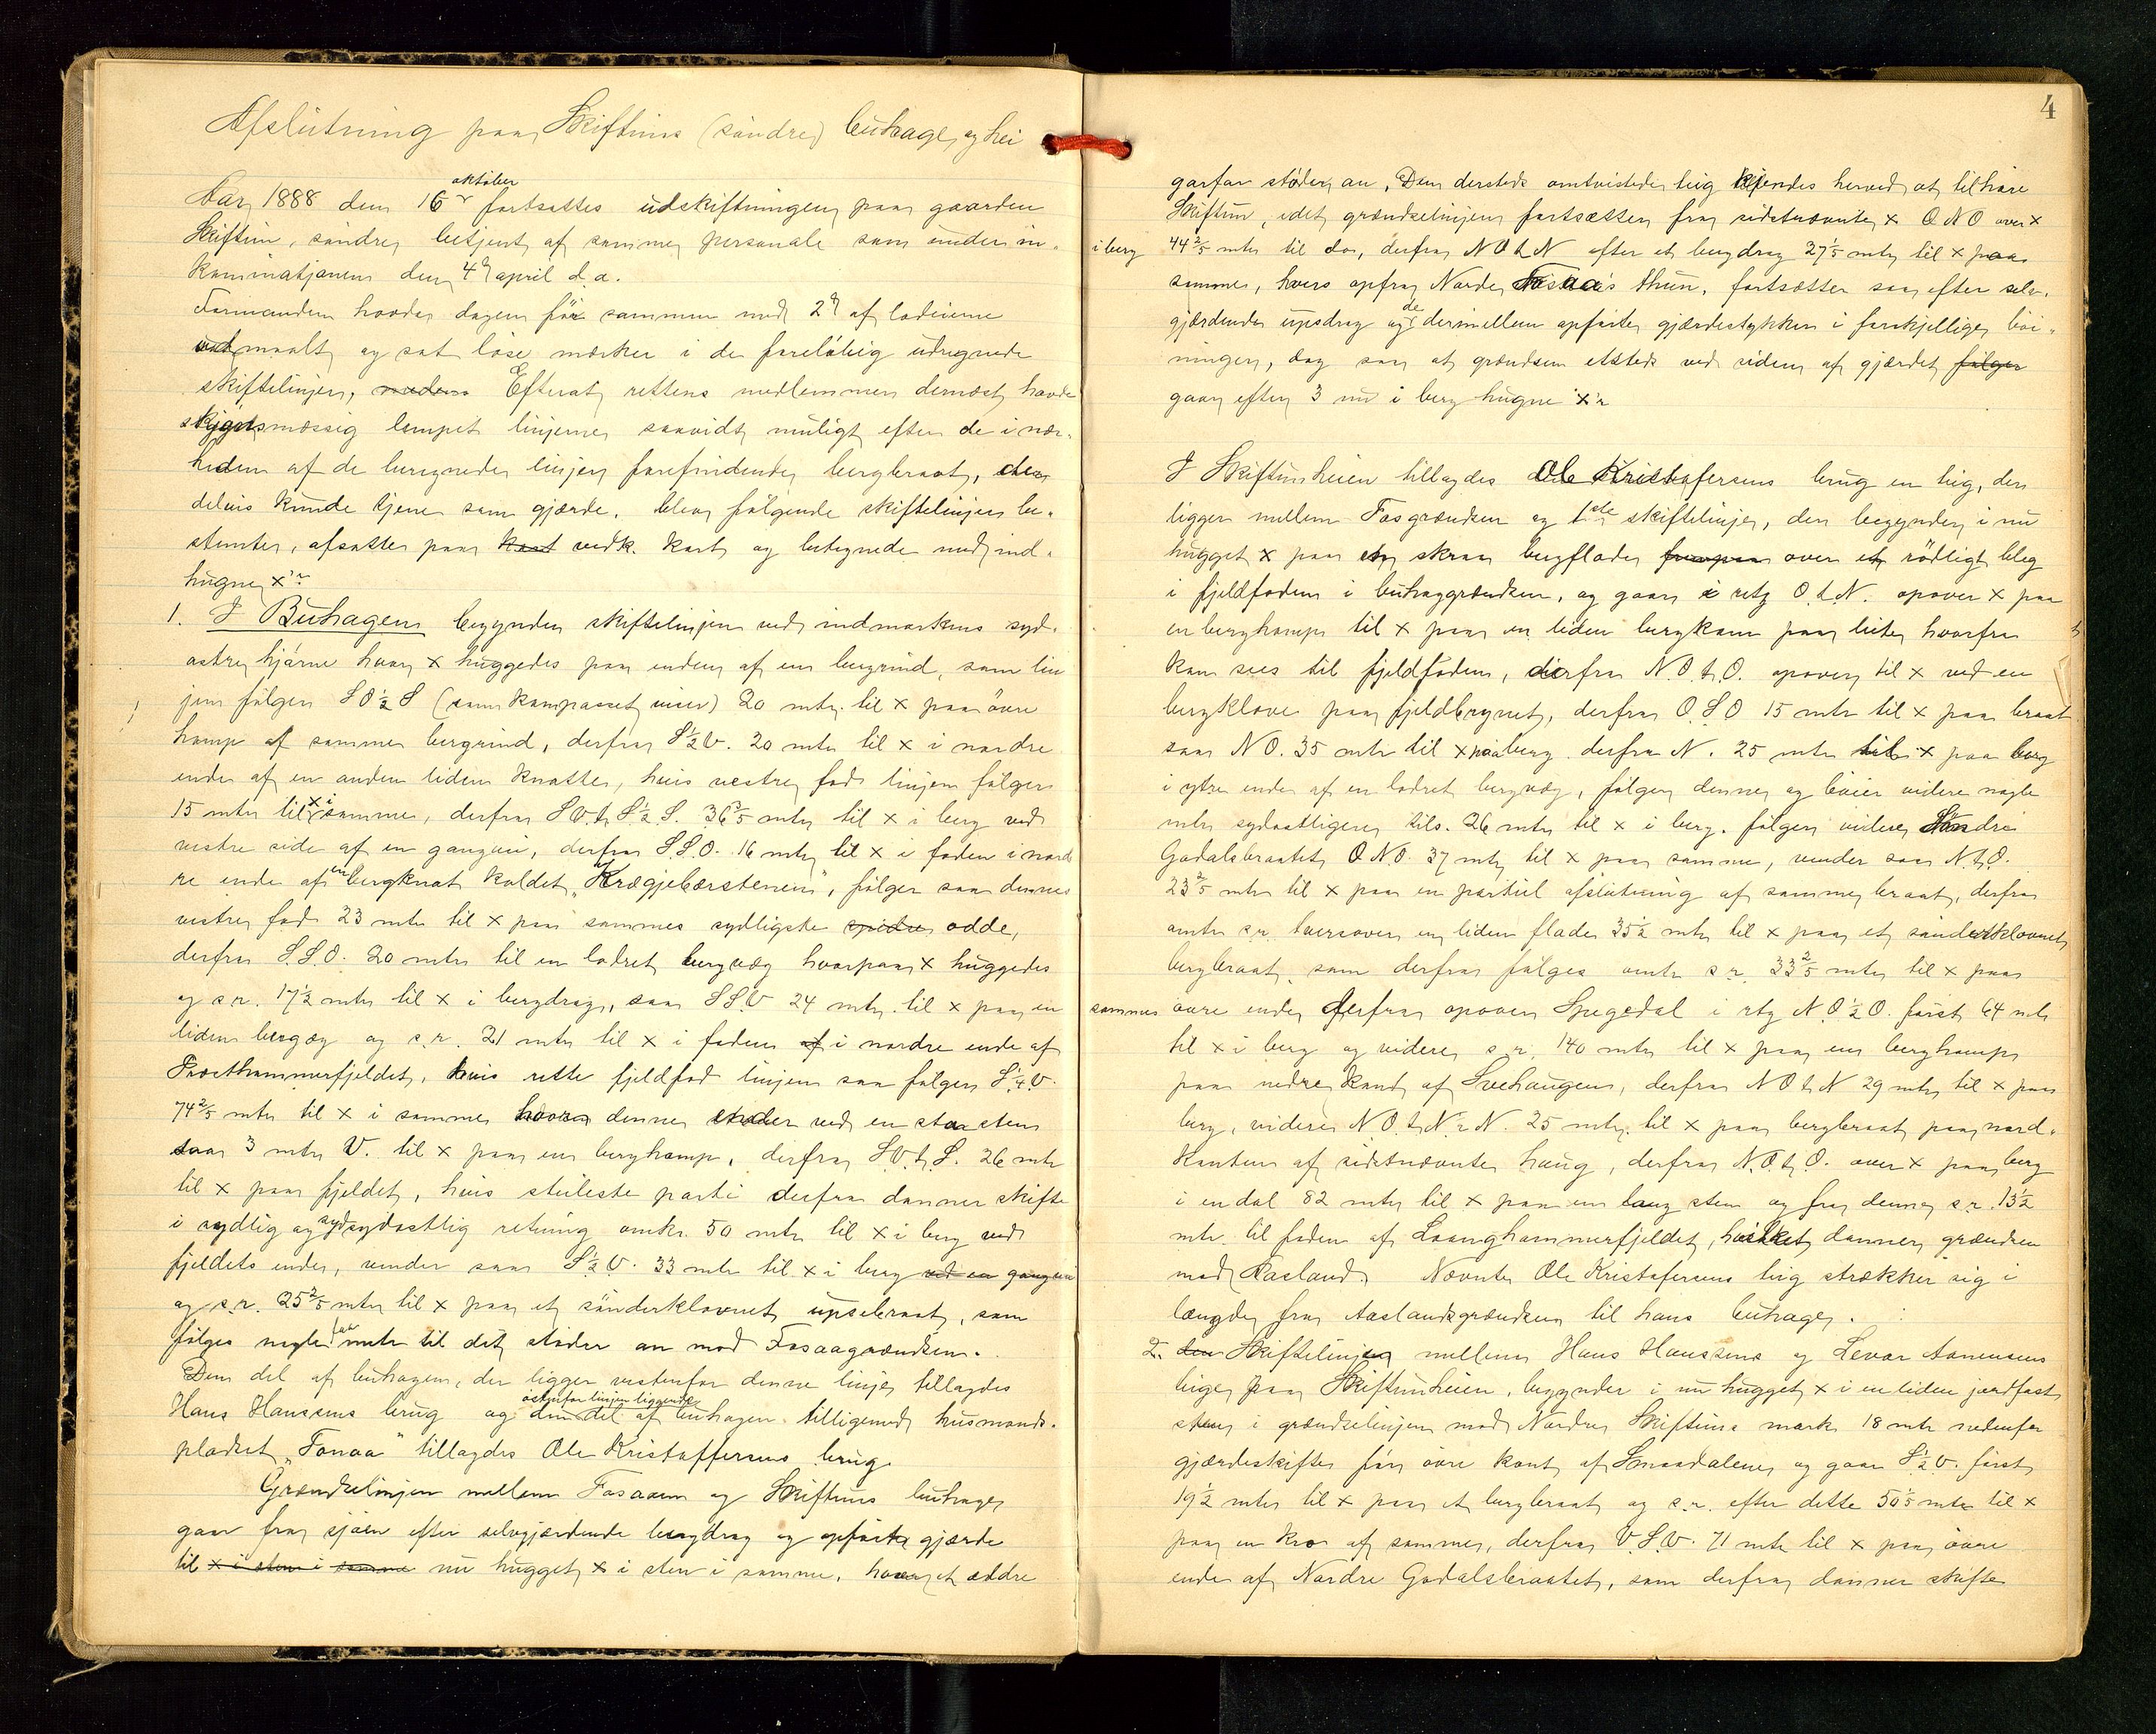 Afslutning paa Skiftuns (søndre) buhage og hei
Aar 1888 den 16 oktober fortsattes udskiftningen paa gaarden
Skiftun, søndre, betjent af samme personale som under in-
kaminatjonen den 4de april d.a.
Formanden havde dagen før sammen med 2de af lodeierne
maalt og sat løse mærker i de foreløbig udregnede
skiftelinjer, Efterat rettens medlemmer dernæst havde
skjønsmæssig lempet linjerne saavidt muligt efter de i nær-
heden af de beregnede linjer forefindende bergbraat, der
delvis kunde tjene som gjærde, blev følgende skiftelinjer be-
stemte, afsatte paa vedk. kart og betegnede med ind-
hugne x'r
1. I Buhagen begynder skiftelinjen ved indmarkens syd-
østre hjørne hvor x huggedes paa enden af en bergrind, som lin
jen følger SO½S (som kompasset viser) 20 mtr. til x paa øvre
hamp af samme bergrind, derfra S½V. 20 mtr til x i nordre
ende af en anden liden knatte, hvis vestre fod linjen følger
15 mtr til x i samme, derfra SV.t.S½S. 36⅗ mtr til x i berg ved
vestre side af en gangvei, derfra S.S.O. 16 mtr til x i foden i nord
re ende af en bergknat kaldet "Krægjebørstenen", følger saa dennes
vestre fod 23 mtr til x paa sammes sydligste odde,
derfra S.S.O. 20 mtr til en lodret bergvæg hvorpaa x huggedes
og s.r. 17½ mtr til x i bergdrag, saa SSV 24 mtr. til x paa en
liden bergæg og s.r. 21 mtr til x i foden i nordre ende af
Præsthammerfjeldet, hvis rette fjeldfod linjen saa følger S¼V.
74⅖ mtr til x i samme hvor denne ender ved en stor sten
saa 3 mtr V. til x paa en berghamp, derfra SV.t.S. 26 mtr
til x paa fjeldet, hvis steileste parti derfra danner skifte
i sydlig og sydsydostlig retning omkr. 50 mtr til x i berg ved
fjeldets ende, vender saa S½V. 33 mtr til x i berg ved en gangvei
og s.r. 25⅖ mtr til x paa et sønderklovnet upsebraat, som
følges nogle faa mtr til det støder an mod Fosaagrændsen.
Den del af buhagen, der ligger vestenfor denne linje tillagdes
Hans Hanssens brug og den østenfor linjen liggende del af buhagen tilligemed husmands-
pladset "Fonaa" tillagdes Ole Kristoffersens brug.
Grændselinjen mellem Fosaaen og Skiftuns buhage
gaar fra sjøen efter selvgjærdende bergdrag og opførte gjærde
til x i sten i samme nu hugget x i sten i samme, hvor et ældre
4
garfar støder an. Den dersteds omtvistede teig kjendes herved at tilhøre
Skiftun, idet grændselinjen fortsætter fra sidstnævnte x ONO over x
i berg 44⅖ mtr til do, derfra NOtN efter et bergdrag 27⅕ mtr til x paa
samme, hvors opfra Nordre Fosaa's thun, fortsætter saa efter selv-
gjærdende upsdrag og de derimellem opførte gjærdestykker i forskjellige bøi-
ninger, dog saa at grændsen etsteds ved siden af gjærdet følger
gaar efter 3 nu i berg hugne x'r
I Skiftunheien tillagdes Ole Kristofersens brug en teig, der
ligger mellem Fosgrændsen og 1ste skiftelinje, der begynder i nu
hugget x paa skraa bergflade over rødligt bleg
i fjeldfoden i buhaggrændsen, og gaar i retg O.t.N. opover x paa
en berghamp til x paa en liden bergkam paa leite hvorfra
kan sees til fjeldfoden, derfra N.O.t.O. opover til x ved en
bergklove paa fjeldbrynet, derfra O.S.O 15 mtr til x paa braat
saa NO. 35 mtr til x paa berg derfra N. 25 mtr til x paa berg
i ytre ende af en lodret bergvæg, følger denne og bøier videre nogle
mtr sydostligere tils. 26 mtr til x i berg. følger videre Søndre
Godalsbraatet O.N.O. 37 mtr til x paa samme, vender saa N.t.O.
23⅖ mtr til x paa en partiel afslutning af samme braat, derfra
omtr s.r. tversover en liden flade 35½ mtr til x paa et sønderklovnet
bergbraat, som derfra følges omtr s.r. 33⅖ mtr til x paa
sammes øvre ende, derfra opover Spegedal i rtg N.O½O. først 64 mtr
til x i berg og videre s.r. 140 mtr til x paa en berghamp
paa nedre kant af Svehaugen, derfra NOtN 29 mtr til x paa
berg, videre N.O.t.N½N. 25 mtr. til x paa bergbraat paa nord-
kanten af sidstnævnte haug, derfra N.O.t.O. over x paa berg
i en dal 82 mtr til x paa en lang sten og fra denne s.r. 13½
mtr. til foden af Laanghammerfjeldet, hvilket danner grændsen
mod Aasland. Nævnte Ole Kristofersens teig strækker sig i
længde fra Aaslandsgrændsen til hans buhage.
2. Skiftelinjen mellem Hans Hanssens og Levar Aanensens
teige paa Skiftunheien, begynder i nu hugget x i en liden jordfast
sten i grændselinjen mod Nordre Skiftuns mark 18 mtr nedenfor
gjærdeskiftet før øvre kant af Smaadalene og gaar S½V. først
19½ mtr til x paa et bergbraat og s.r. efter dette 50⅕ mtr til x
paa en kro af samme, derfra V.S.V. 71 mtr til x paa øvre
ende af Nordre Godalsbraatet, som derfra danner skifte